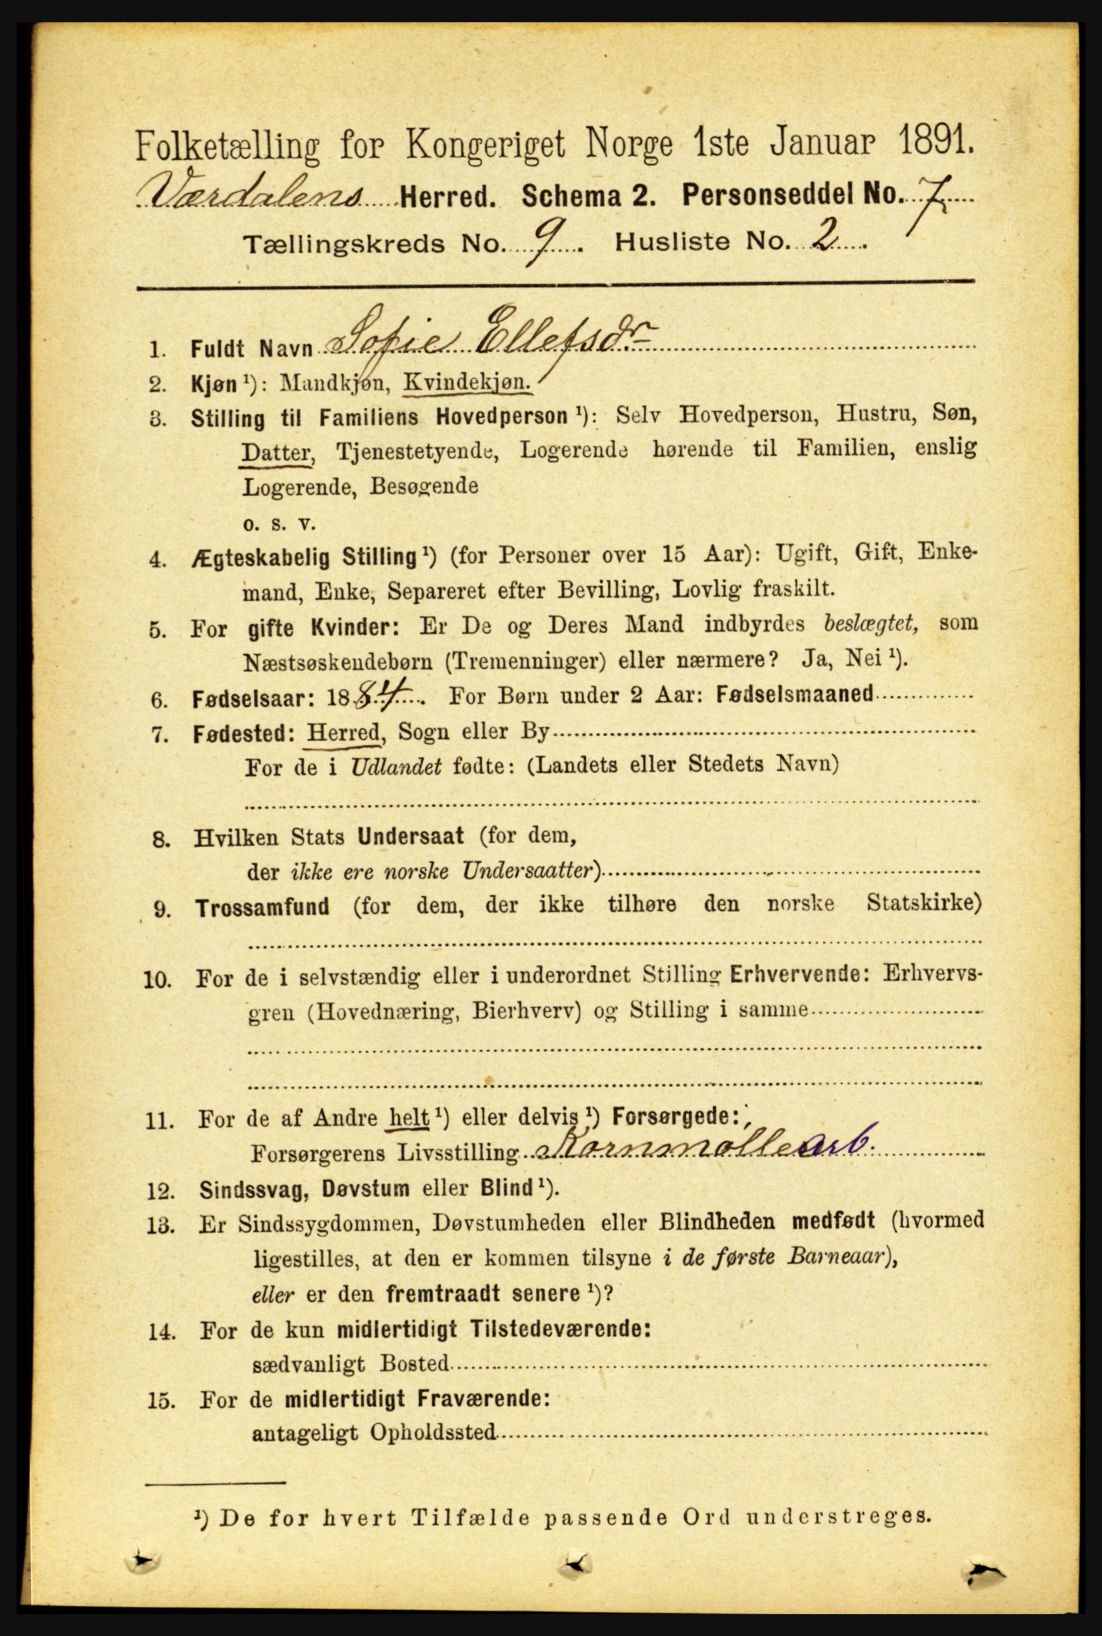 Folketælling for Kongeriget Norge 1ste Januar 1891.
Værdalens Herred. Schema 2. Personseddel No. 7
Tællingskreds No. 9. Husliste No. 2.
1. Fuldt Navn Sofie Ellefsdr
2. Kjøn ¹): Mandkjøn, Kvindekjøn.
3. Stilling til Familiens Hovedperson ¹): Selv Hovedperson, Hustru, Søn,
Datter, Tjenestetyende, Logerende hørende til Familien, enslig
Logerende, Besøgende
o. s. v.
4. Ægteskabelig Stilling ¹) (for Personer over 15 Aar): Ugift, Gift, Enke-
mand, Enke, Separeret efter Bevilling, Lovlig fraskilt.
5. For gifte Kvinder: Er De og Deres Mand indbyrdes beslægtet, som
Næstsøskendebørn (Tremenninger) eller nærmere? Ja, Nei ¹).
6. Fødselsaar: 1884. For Børn under 2 Aar: Fødselsmaaned
7. Fødested: Herred, Sogn eller By
For de i Udlandet fødte: (Landets eller Stedets Navn)
8. Hvilken Stats Undersaat (for dem,
der ikke ere norske Undersaatter)
9. Trossamfund (for dem, der ikke tilhøre den norske Statskirke)
10. For de i selvstændig eller i underordnet Stilling Erhvervende: Erhvervs-
gren (Hovednæring, Bierhverv) og Stilling i samme
11. For de af Andre helt ¹) eller delvis ¹) Forsørgede:
Forsørgerens Livsstilling Kornmøllearb.
12. Sindssvag, Døvstum eller Blind ¹).
13. Er Sindssygdommen, Døvstumheden eller Blindheden medfødt (hvormed
ligestilles, at den er kommen tilsyne i de første Barneaar),
eller er den fremtraadt senere ¹)?
14. For de kun midlertidigt Tilstedeværende:
sædvanligt Bosted
15. For de midlertidigt Fraværende:
antageligt Opholdssted
¹) De for hvert Tilfælde passende Ord understreges.